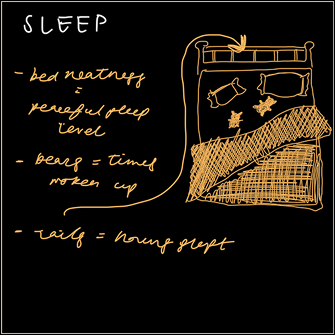 SLEEP
- bed neatness
=
peaceful sleep
level
- bears = times
woken up
- rails = hours slept